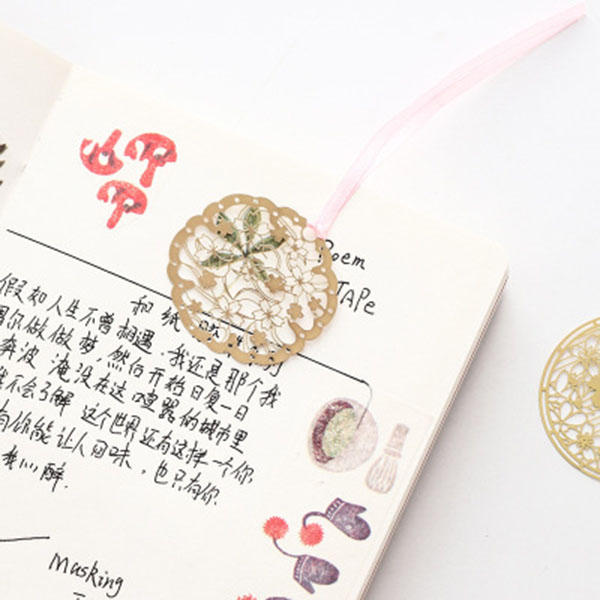 Poem
TAPe
和纸
假如人生不曾相遇，我还是那个我
偶尔做做梦，然后开始日复一日
奔波，淹没在这喧嚣的城市里
不会了解，这个世界还有这样一个你
有你能让人回味，也只有你
我心醉．
Masking